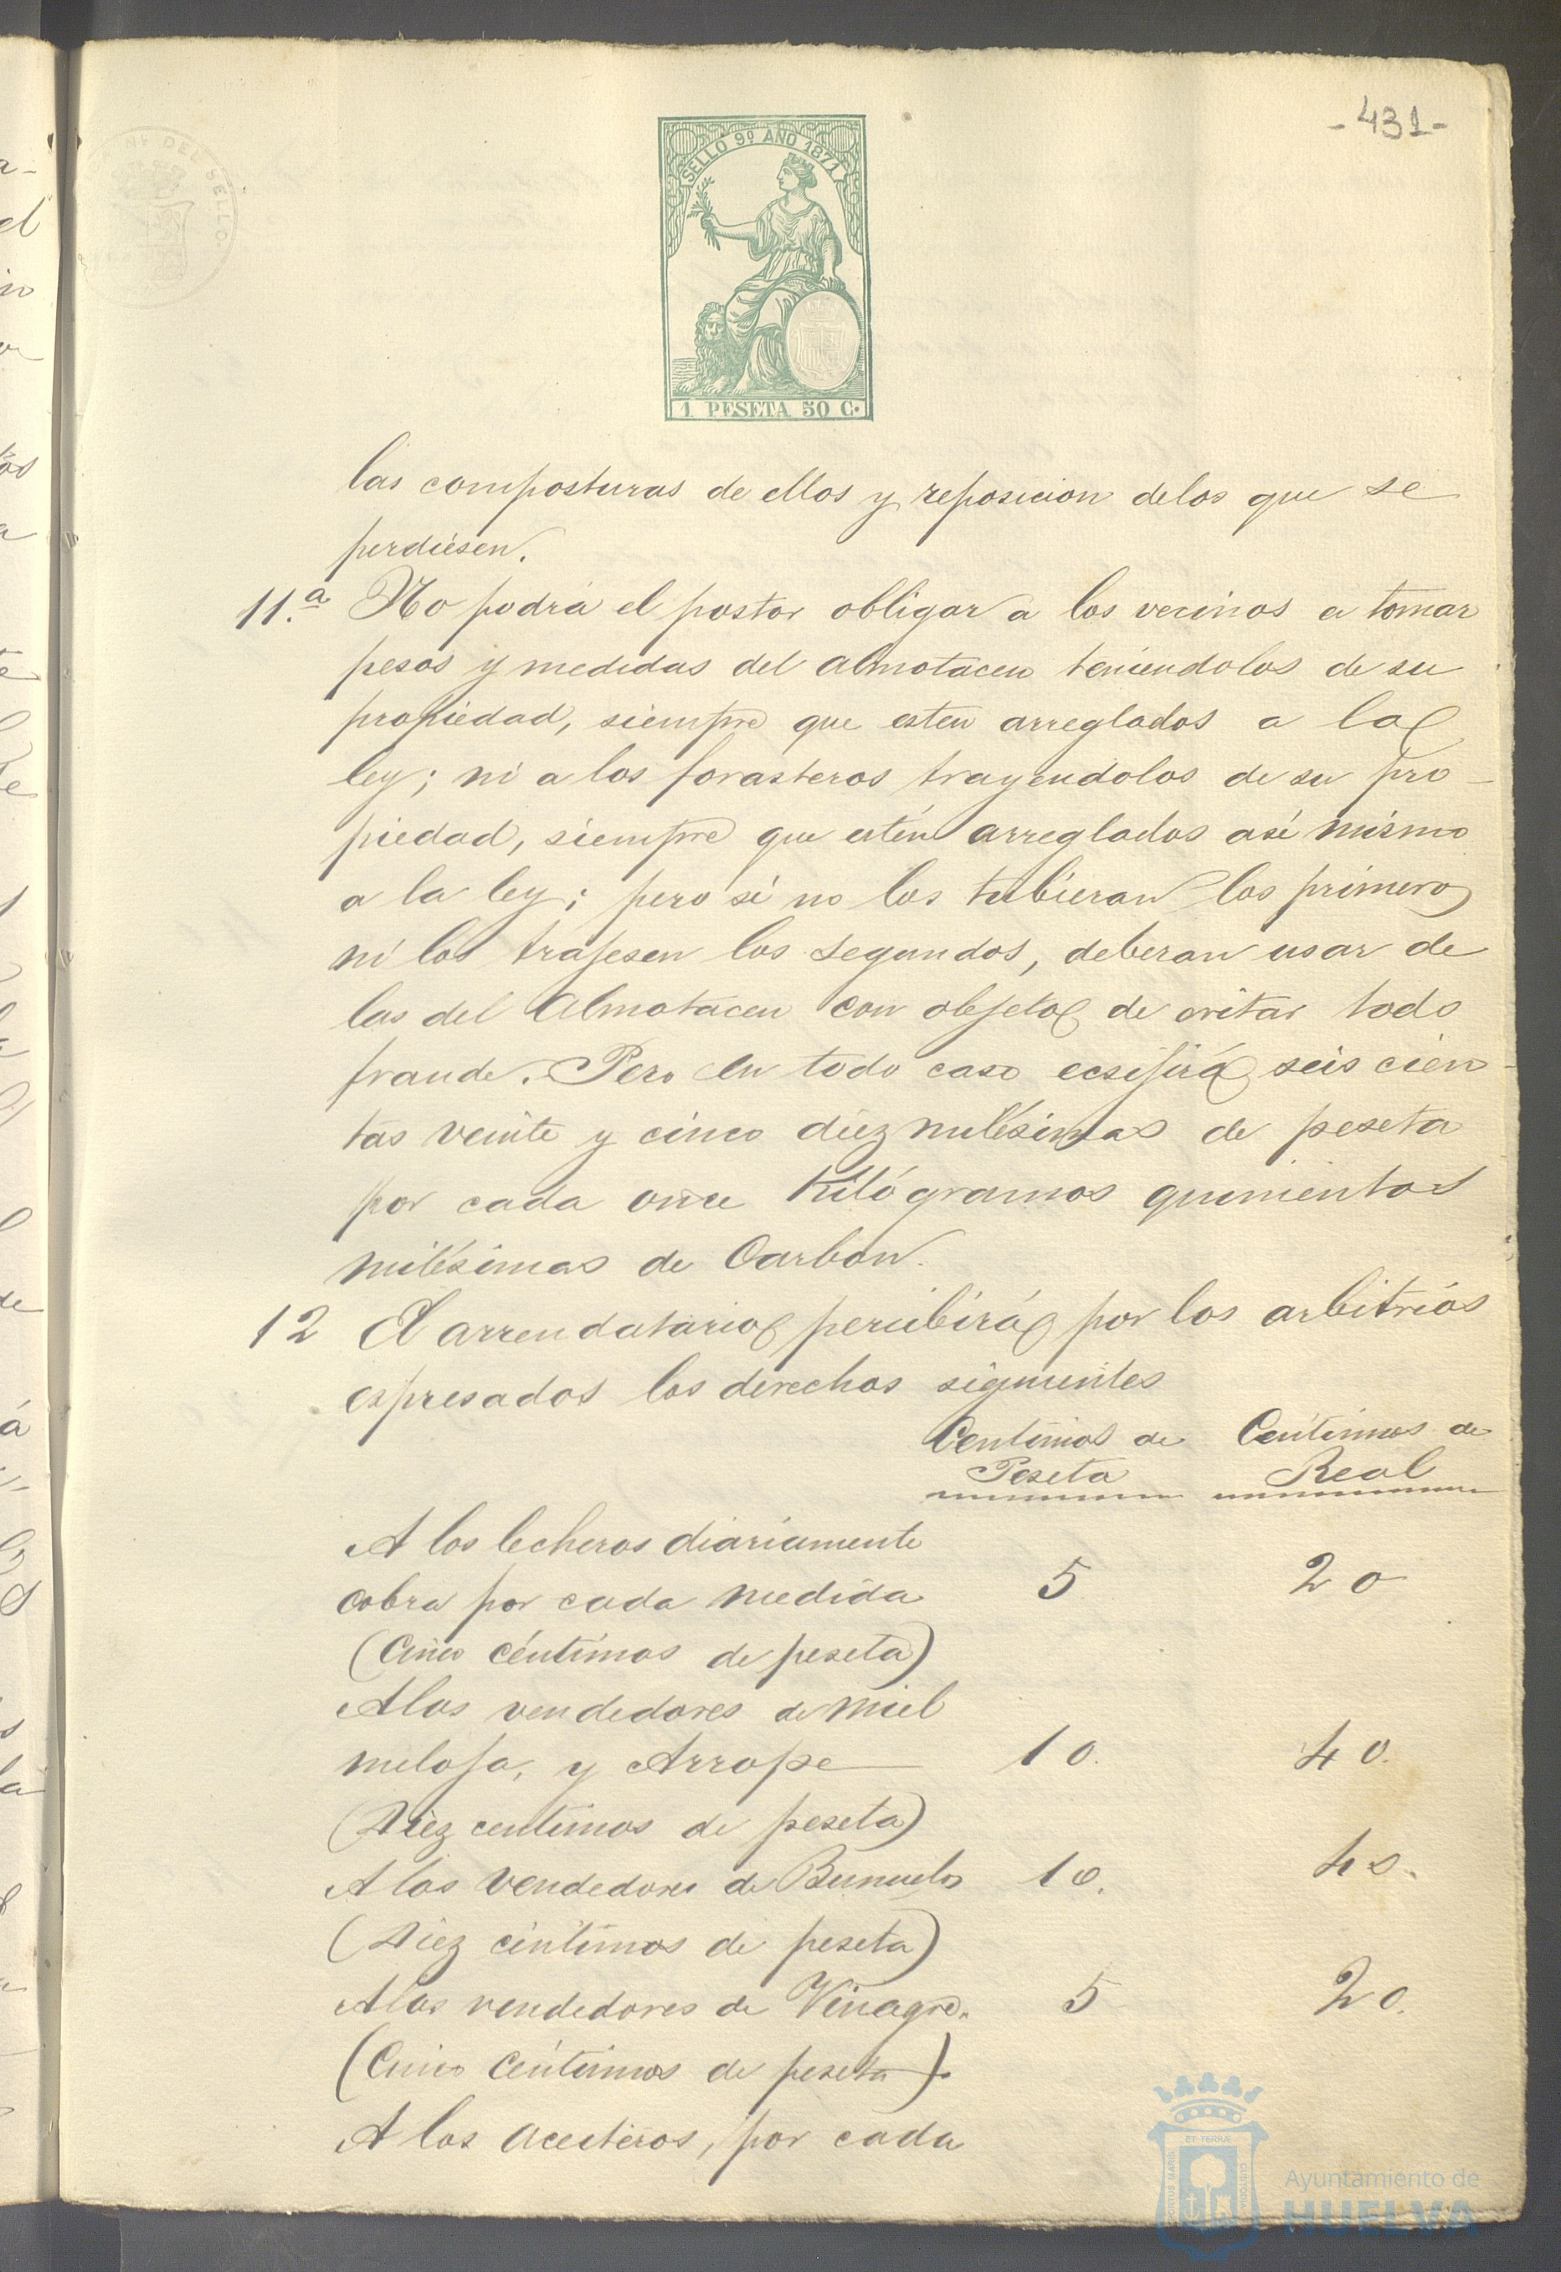 -431-
SELLO 9º AÑO 1871
1 PESETA 50 C.
las composturas de ellos y reposicion delos que se
perdiesen.
11.ª No podrá el postor obligar a los vecinos a tomar
pesos y medidas del almotacen teniendolos de su
propiedad, siempre que esten arreglados a la
ley; ni a los forasteros trayendolos de su pro-
piedad, siempre que estén arreglados asi mismo
a la ley; pero si no los tubieran los primeros
ni los trajesen los segundos, deberan usar de
los del Almotacen con objeto de evitar todo
fraude. Pero en todo caso ecsijirá seis cien-
tas veinte y cinco diez milésimas de peseta
por cada once Kilógramos quinientas
milésimas de Carbon.
12 El arrendatario percibirá por los arbitrios
espresados los derechos siguientes
Centimos de Centimos de
Peseta Real
A los lecheros diariamente
cobra por cada medida 5 20
(Cinco céntimos de peseta)
A los vendedores de miel
meloja, y Arrope 10. 40.
(Diez centimos de peseta)
A los vendedores de Bunuelos 10. 40.
(Diez centimos de peseta)
A los vendedores de Vinagre. 5 20.
(Cinco Centimos de peseta).
A los aceiteros, por cada
Ayuntamiento de
HUELVA